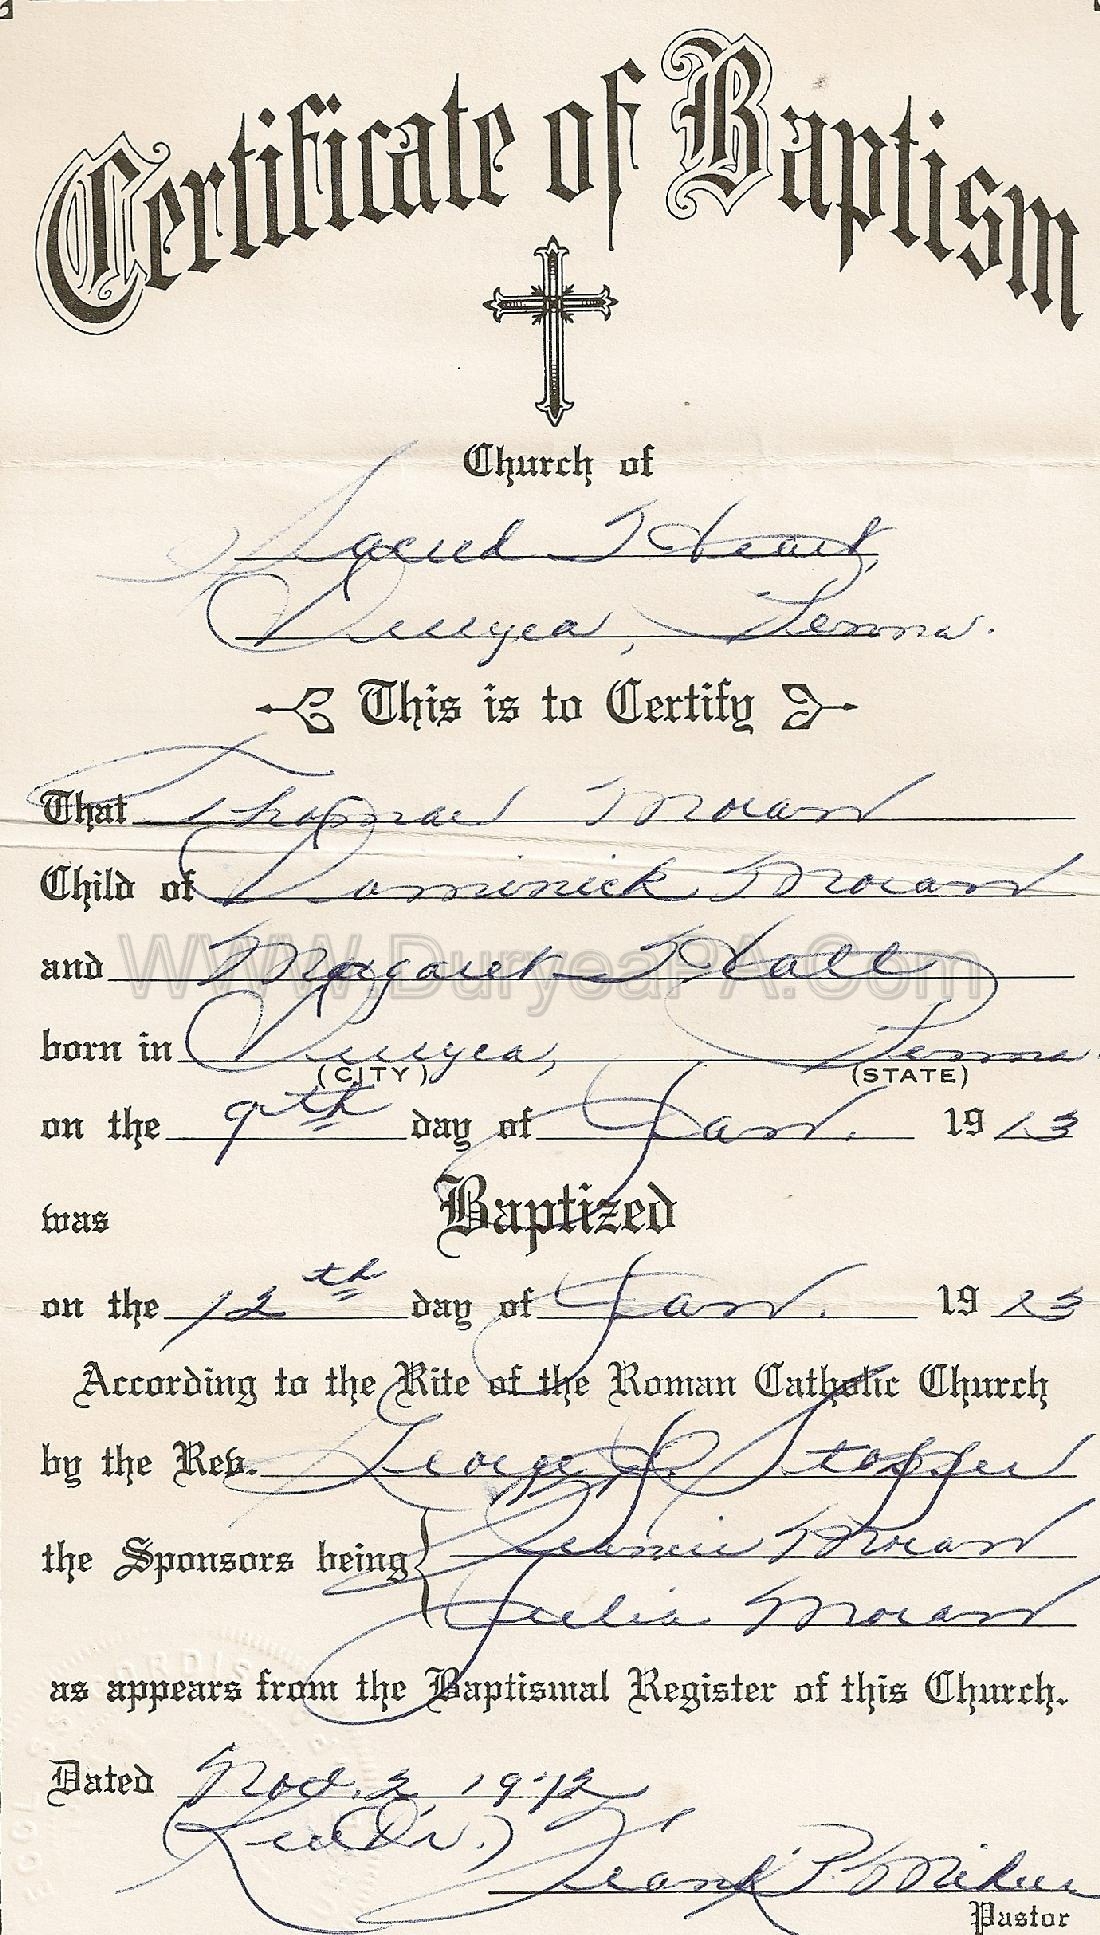 Certificate of Baptism
Church of
Sacred Heart
Duryea, Penna.
This is to Certify
That Thomas Moran
Child of Dominick Moran
and Margaret Hall
WWW.DuryeaPA.Com
born in Duryea, Penna.
(CITY) (STATE)
on the 9th day of Jan. 1913
was Baptized
on the 12th day of Jan. 1913
According to the Rite of the Roman Catholic Church
by the Rev. George J. Stopper
the Sponsors being Jennie Moran
Julia Moran
as appears from the Baptismal Register of this Church.
Dated Nov. 2, 1972
Frank P.
Pastor